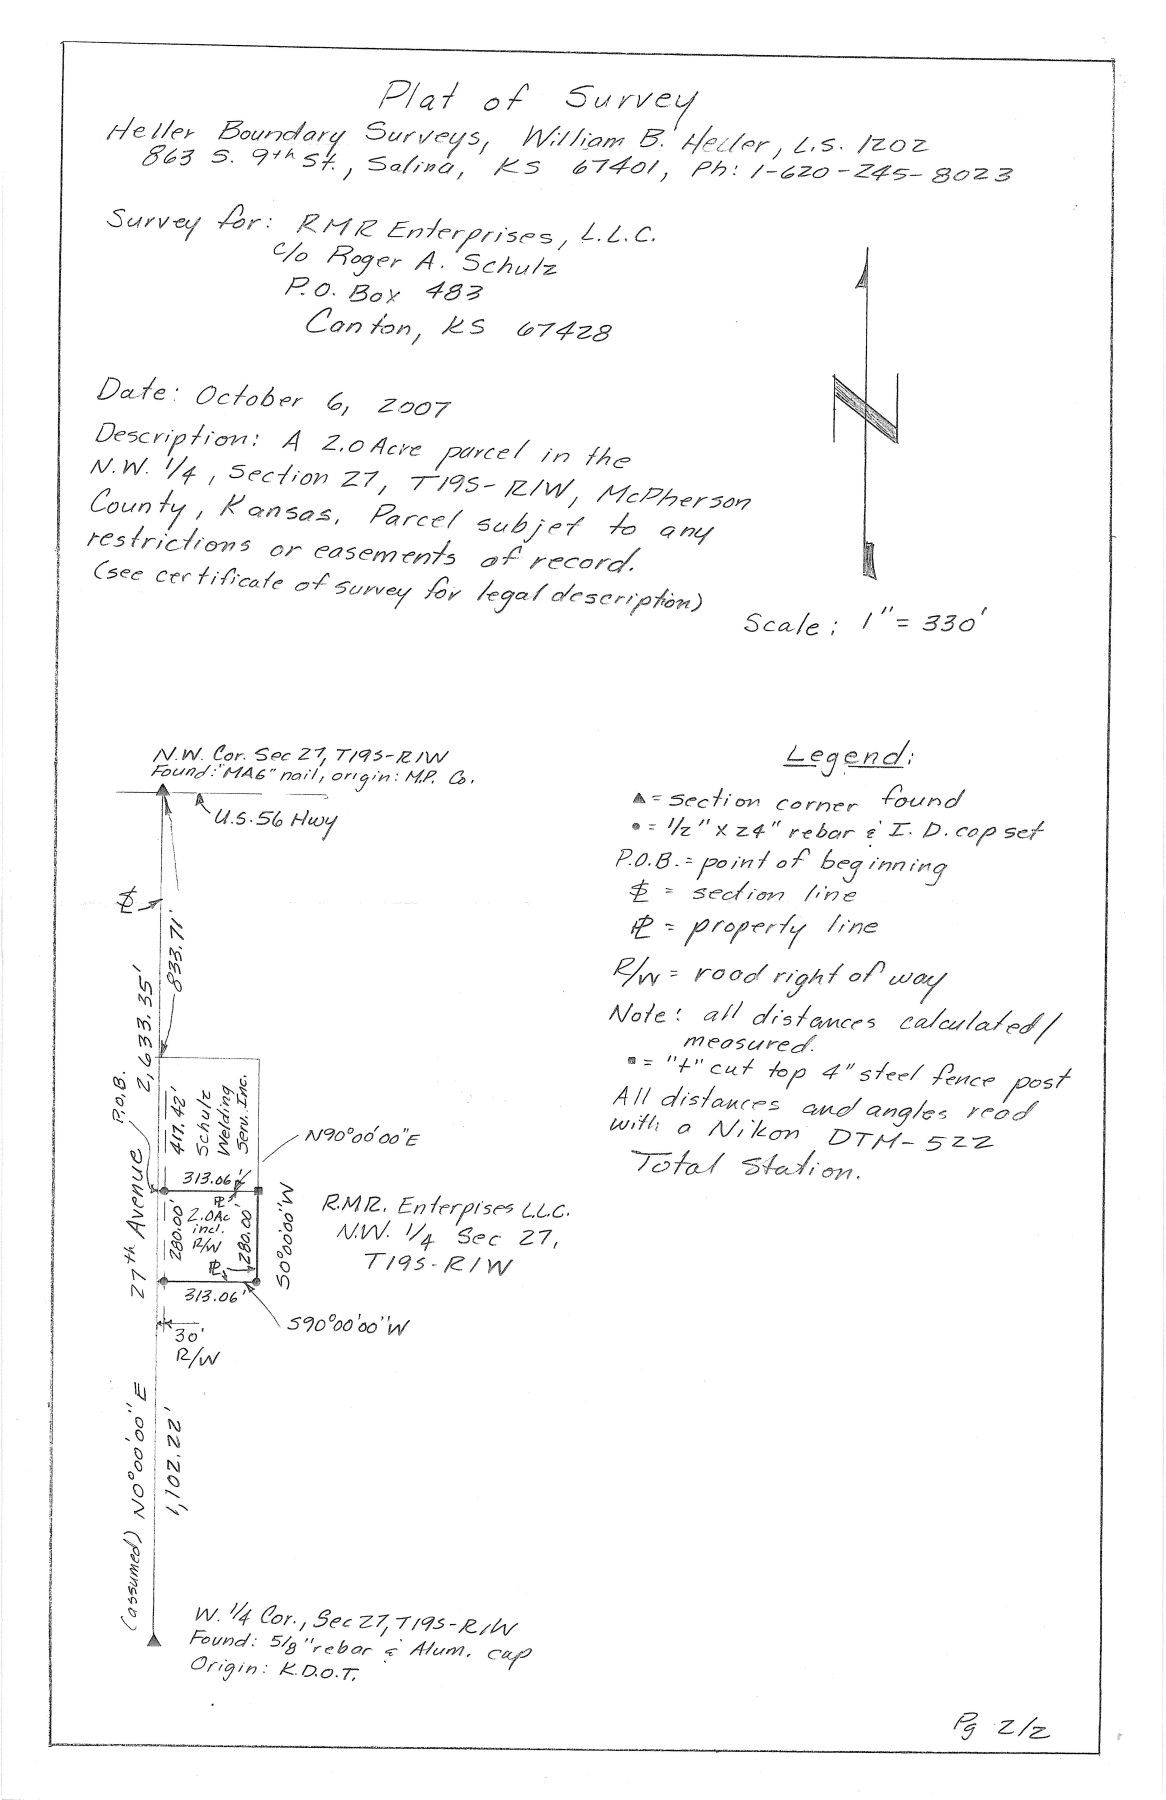 Plat of Survey
Heller Boundary Surveys, William B. Heller, L.S. 1202
863 S. 9th St., Salina, KS 67401, Ph: 1-620-245-8023
Survey for: RMR Enterprises, L.L.C.
c/o Roger A. Schulz
P.O. Box 483
Canton, KS 67428
Date: October 6, 2007
Description: A 2.0 Acre parcel in the
N.W. 1/4, Section 27, T19S-R1W, McPherson
County, Kansas. Parcel subjet to any
restrictions or easements of record.
(see certificate of survey for legal description)
N
Scale: 1"=330'
N.W. Cor. Sec 27, T19S-R1W
Found: "MAG" nail, origin: M.P. Co.
U.S. 56 Hwy
833.71'
2,633.35'
P.O.B.
417.42'
Schulz
Welding
Serv. Inc.
N90°00'00"E
313.06'
27th Avenue
280.00'
PL
2.0Ac
incl.
R/W
PL
280.00'
S0°00'00"W
R.M.R. Enterpises L.L.C.
N.W. 1/4 Sec 27,
T19S-R1W
313.06'
S90°00'00"W
30'
R/W
(assumed) N0°00'00"E
1,102.22'
W. 1/4 Cor., Sec 27, T19S-R1W
Found: 5/8" rebar & Alum. cap
Origin: K.D.O.T.
Legend:
▲ = section corner found
• = 1/2" x 24" rebar & I.D. cap set
P.O.B. = point of beginning
= section line
PL = property line
R/W = road right of way
Note: all distances calculated/
measured.
▪ = "+" cut top 4" steel fence post
All distances and angles read
with a Nikon DTM-522
Total Station.
Pg 2/2